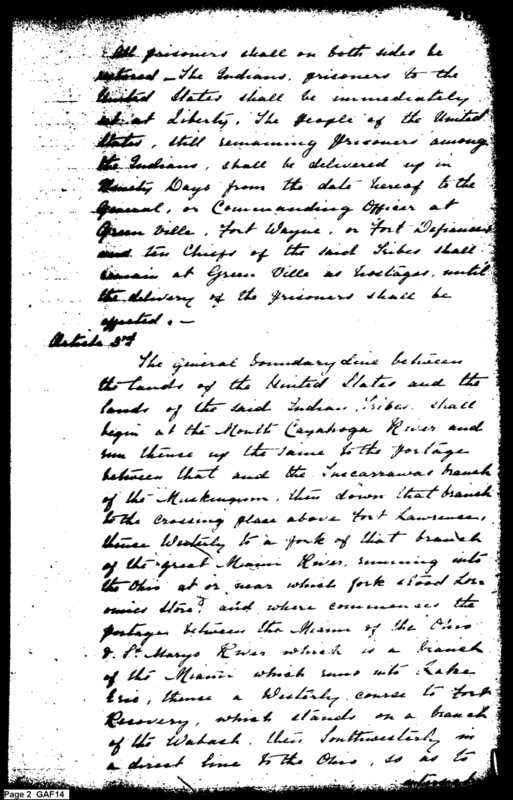 All prisoners shall on both sides be
restored - The Indians, prisoners to the
United States shall be immediately
set at Liberty. The people of the United
States, still remaining prisoners among
the Indians, shall be delivered up in
Ninety Days from the date hereof to the
General, or Commanding Officer at
Green Ville, Fort Wayne, or Fort Defiance
and ten Chiefs of the said Tribes shall
remain at Green Ville as hostages, until
the delivery of the prisoners shall be
effected. -
Article 3rd
The General Boundary Line between
the lands of the United States and the
lands of the said Indian Tribes, shall
begin at the Mouth Cayahoga River and
run thence up the same to the portage
between that and the Tuscarrawas branch
of the Muskingum, then down that branch
to the crossing place above Fort Lawrence,
thence Westerly to a fork of that branch
of the great Miami River, running into
the Ohio at or near which fork stood Lor-
omies Store, and where commences the
portage between the Miami of the Ohio
& St. Marys River which is a branch
of the Miami which runs into Lake
Erie, thence a Westerly course to Fort
Recovery, which stands on a branch
of the Wabash, then Southwesterly in
a direct line to the Ohio, so as to
intersect
Page 2 GAF14